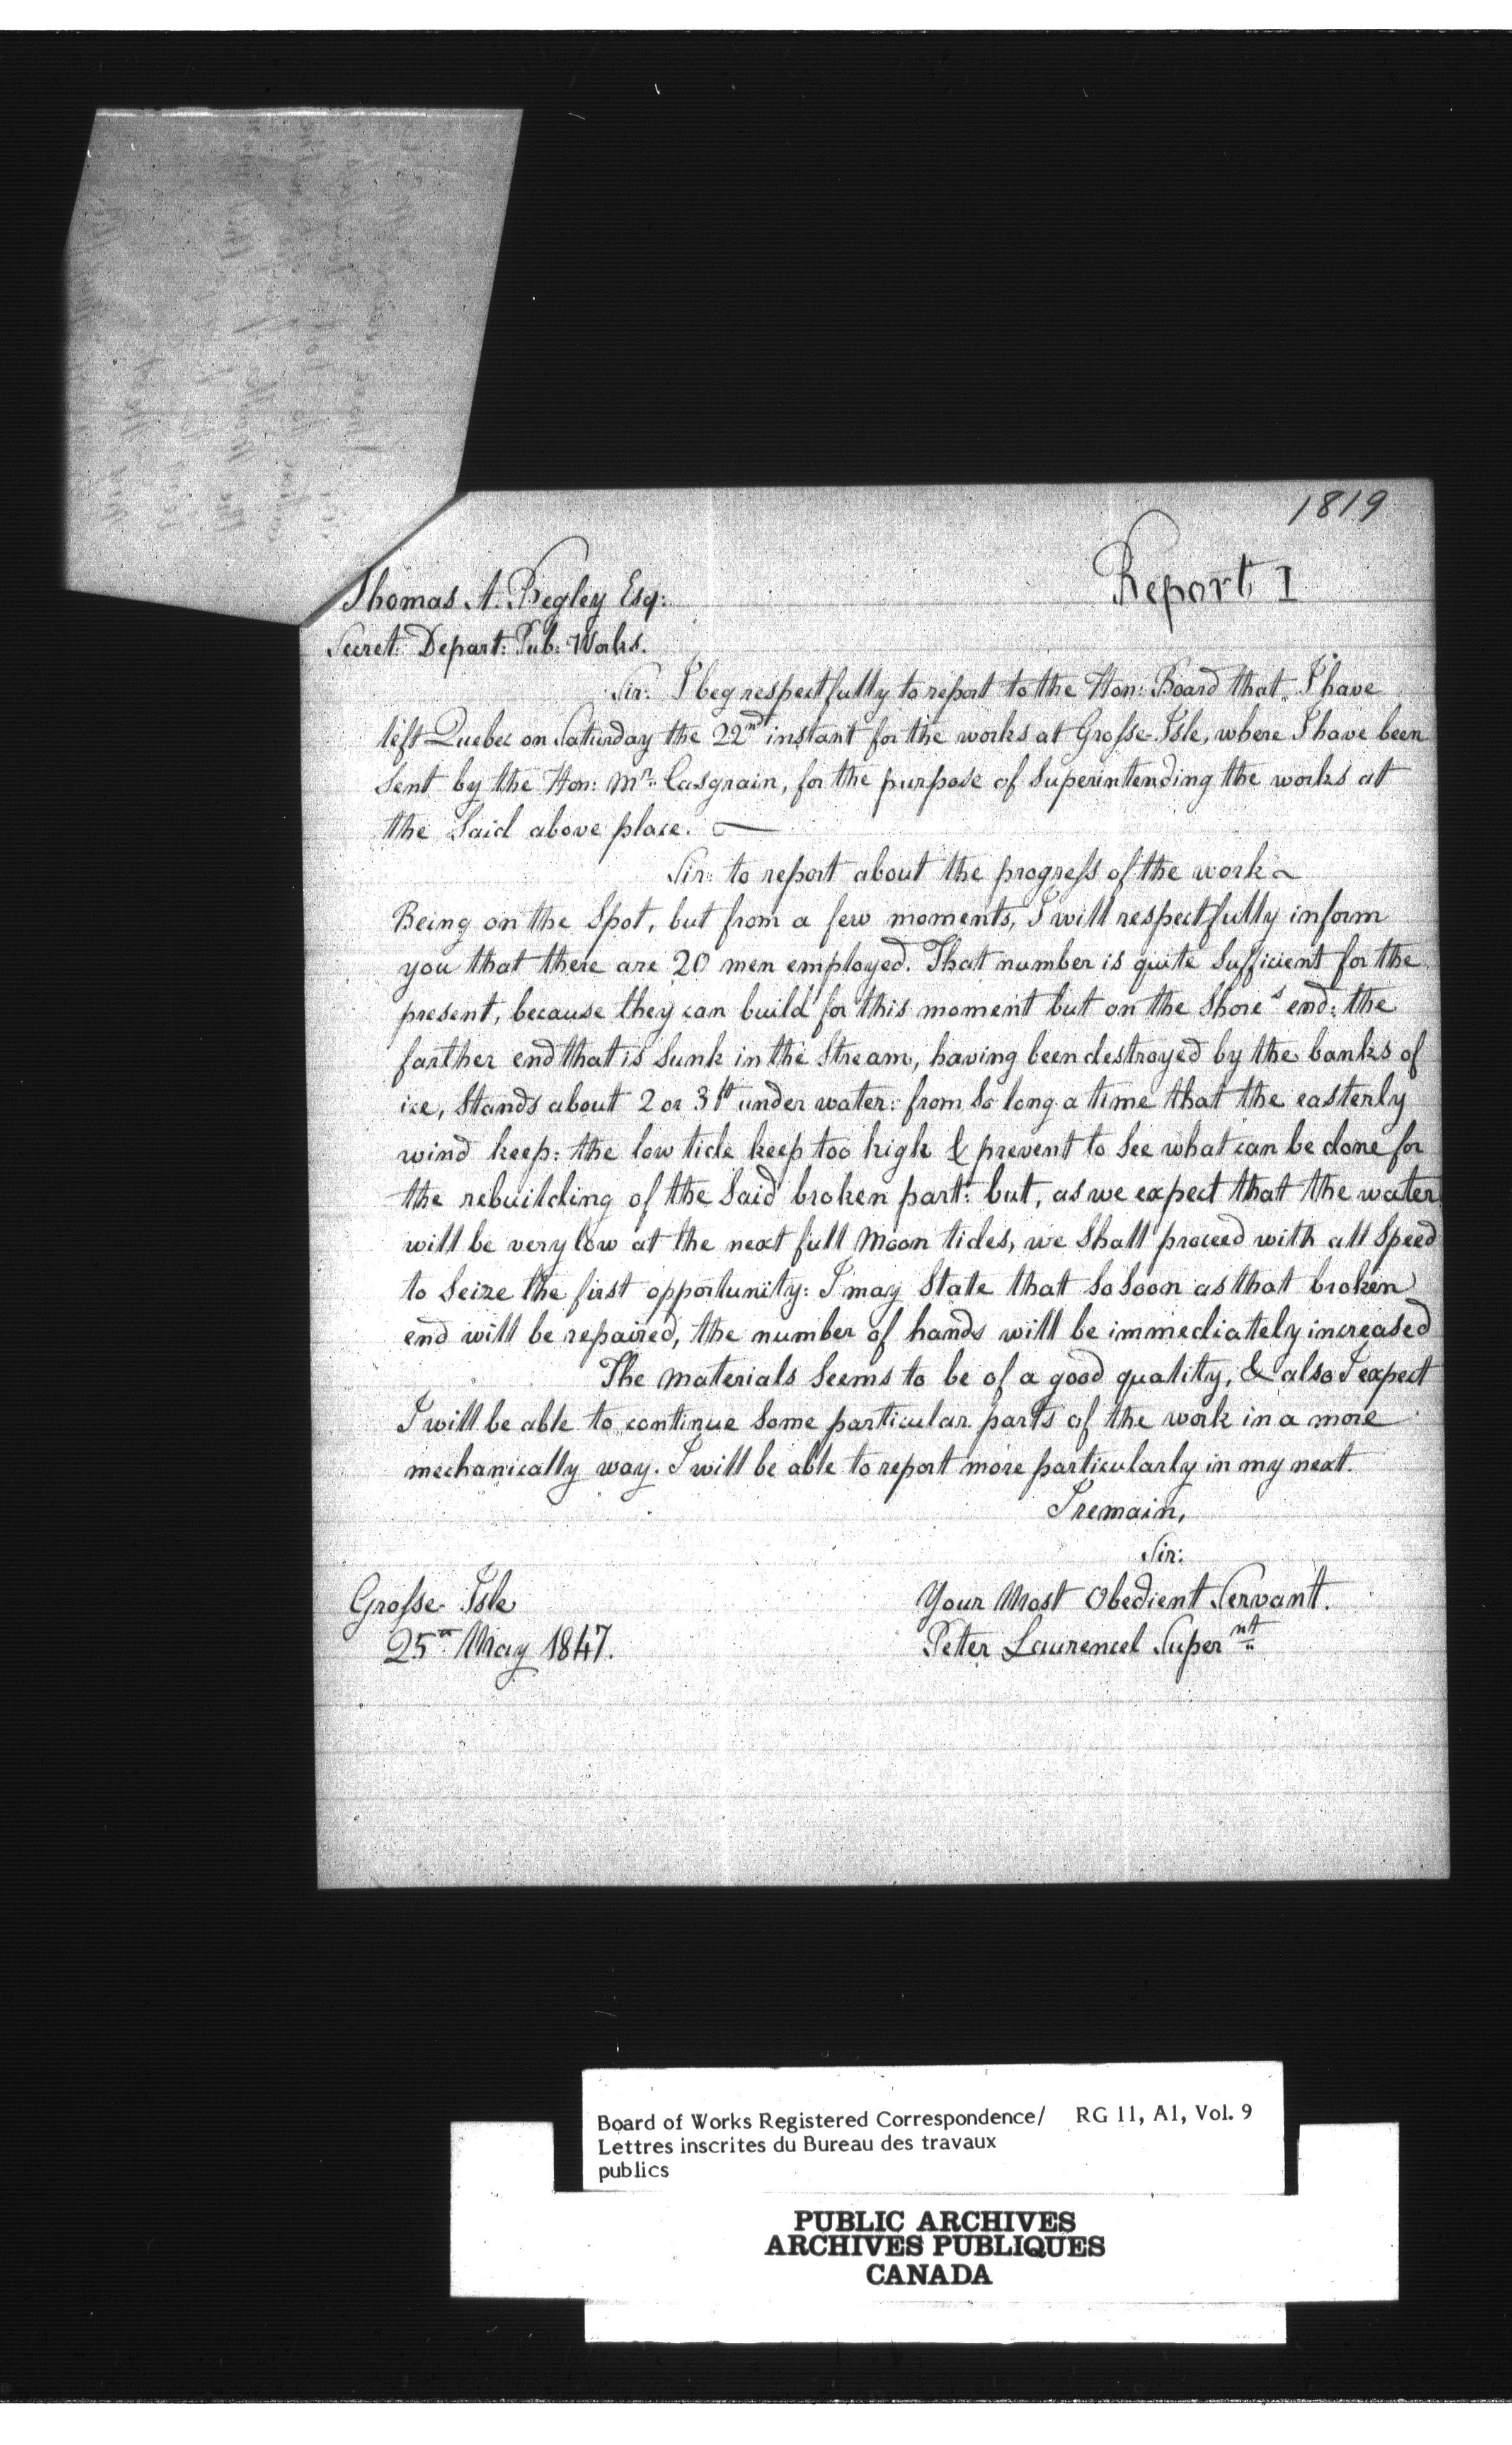 1819
Report I
Thomas A. Begley Esq:
Secret: Depart: Pub: Works.
Sir: I beg respectfully to report to the Hon: Board that I have
left Quebec on Saturday the 22nd instant for the works at Grosse-Isle, where I have been
sent by the Hon: Mr: Casgrain, for the purpose of superintending the works at
the said above place. —
Sir: to report about the progress of the work ~
Being on the spot, but from a few moments, I will respectfully inform
you that there are 20 men employed. That number is quite sufficient for the
present, because they can build for this moment but on the shore's end: the
farther end that is sunk in the stream, having been destroyed by the banks of
ice, stands about 2 or 3 ft under water: from so long a time that the easterly
wind keep: the low tide keep too high & prevent to see what can be done for
the rebuilding of the said broken part: but, as we expect that the water
will be very low at the next full Moon tides, we shall proceed with all speed
to seize the first opportunity: I may state that so soon as that broken
end will be repaired, the number of hands will be immediately increased
The materials seems to be of a good quality, & also I expect
I will be able to continue some particular parts of the work in a more
mechanically way. I will be able to report more particularly in my next.
I remain,
Sir:
Your Most Obedient Servant.
Peter Laurencel Supernt
Grosse-Isle
25th May 1847.
Board of Works Registered Correspondence/ RG 11, A1, Vol. 9
Lettres inscrites du Bureau des travaux
publics
PUBLIC ARCHIVES
ARCHIVES PUBLIQUES
CANADA